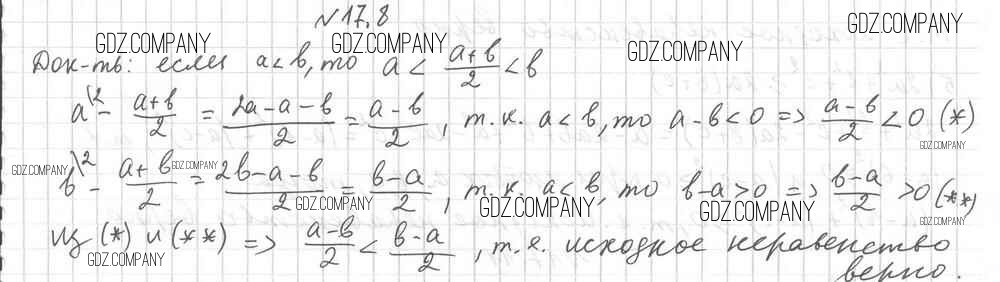 № 17.8
GDZ.COMPANY GDZ.COMPANY GDZ.COMPANY GDZ.COMPANY
Док-ть: если a<b, то a < (a+b)/2 < b
a\2 - (a+b)/2 = (2a-a-b)/2 = (a-b)/2, т.к. a<b, то a-b<0 => (a-b)/2 < 0 (*)
GDZ.COMPANY GDZ.COMPANY GDZ.COMPANY
b\2 - (a+b)/2 = (2b-a-b)/2 = (b-a)/2, т.к. a<b, то b-a>0 => (b-a)/2 > 0 (**)
GDZ.COMPANY GDZ.COMPANY GDZ.COMPANY GDZ.COMPANY
Из (*) и (**) => (a-b)/2 < (b-a)/2, т.е. исходное неравенство
GDZ.COMPANY
верно.